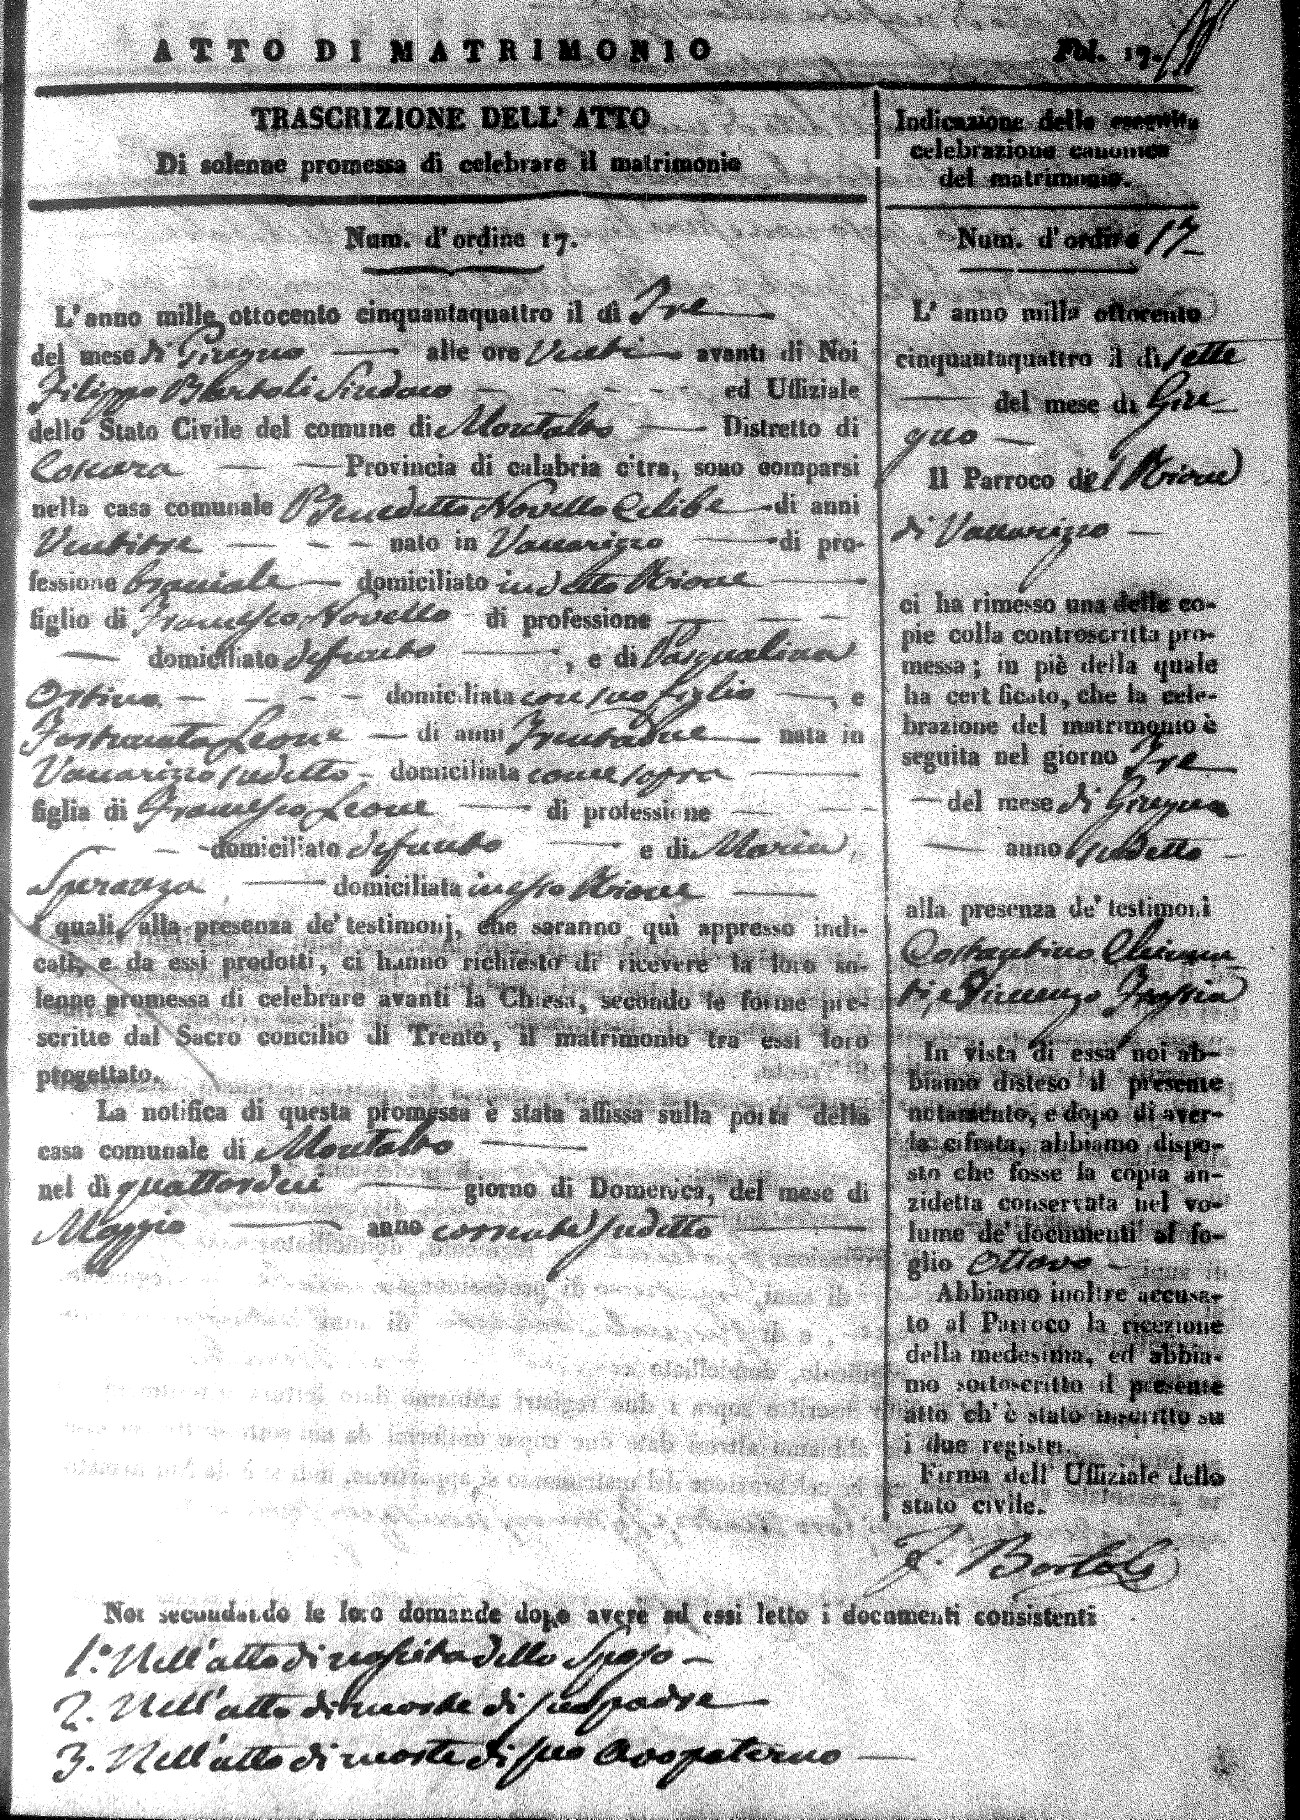 ATTO DI MATRIMONIO
Fol. 17.
TRASCRIZIONE DELL' ATTO
Di solenne promessa di celebrare il matrimonio
Num. d' ordine 17.
L' anno mille ottocento cinquantaquattro il dì Tre
del mese di Giugno alle ore Venti avanti di Noi
Filippo Bartoli Sindaco ed Uffiziale
dello Stato Civile del comune di Montalto Distretto di
Cosenza Provincia di calabria citra, sono comparsi
nella casa comunale Benedetto Novello Celibe di anni
Ventitre nato in Vaccarizzo di pro-
fessione braciale domiciliato in detto Rione
figlio di Francesco Novello di professione
domiciliato defunto , e di Pasqualina
domiciliata con suo figlio , e
Fortunata Leone di anni Trentadue nata in
Vaccarizzo sudetto domiciliata come sopra
figlia di Francesco Leone di professione
domiciliato defunto e di Maria
Speranza domiciliata in esso Rione
i quali, alla presenza de' testimonj, che saranno quì appresso indi-
cati, e da essi prodotti, ci hanno richiesto di ricevere la loro so-
lenne promessa di celebrare avanti la Chiesa, secondo le forme pre-
scritte dal Sacro concilio di Trento, il matrimonio tra essi loro
progettato.
La notifica di questa promessa è stata affissa sulla porta della
casa comunale di Montalto
nel dì quattordici giorno di Domenica, del mese di
Maggio anno corrente sudetto
Indicazione della eseguita
celebrazione canonica
del matrimonio.
Num. d' ordine 17
L' anno mille ottocento
cinquantaquattro il dì sette
del mese di Giu-
gno
Il Parroco del Rione
di Vaccarizzo
ci ha rimesso una delle co-
pie colla controscritta pro-
messa; in piè della quale
ha cert ficato, che la cele-
brazione del matrimonio è
seguita nel giorno Tre
del mese di Giugno
anno sudetto
alla presenza de' testimoni
Costantino
e Vincenzo
In vista di essa noi ab-
biamo disteso il presente
notamento, e dopo di aver-
la cifrata, abbiamo dispo-
sto che fosse la copia an-
zidetta conservata nel vo-
lume de' documenti al fo-
glio Ottavo
Abbiamo inoltre accusa-
to al Parroco la ricezione
della medesima, ed abbia-
mo sottoscritto il presente
atto ch' è stato inscritto su
i due registri.
Firma dell' Uffiziale dello
stato civile.
F. Bartoli
Noi secondando le loro domande dopo avere ad essi letto i documenti consistenti
1.° Nell'atto di nascita dello Sposo
2. Nell'atto di morte di suo padre
3. Nell'atto di morte di suo Avo paterno